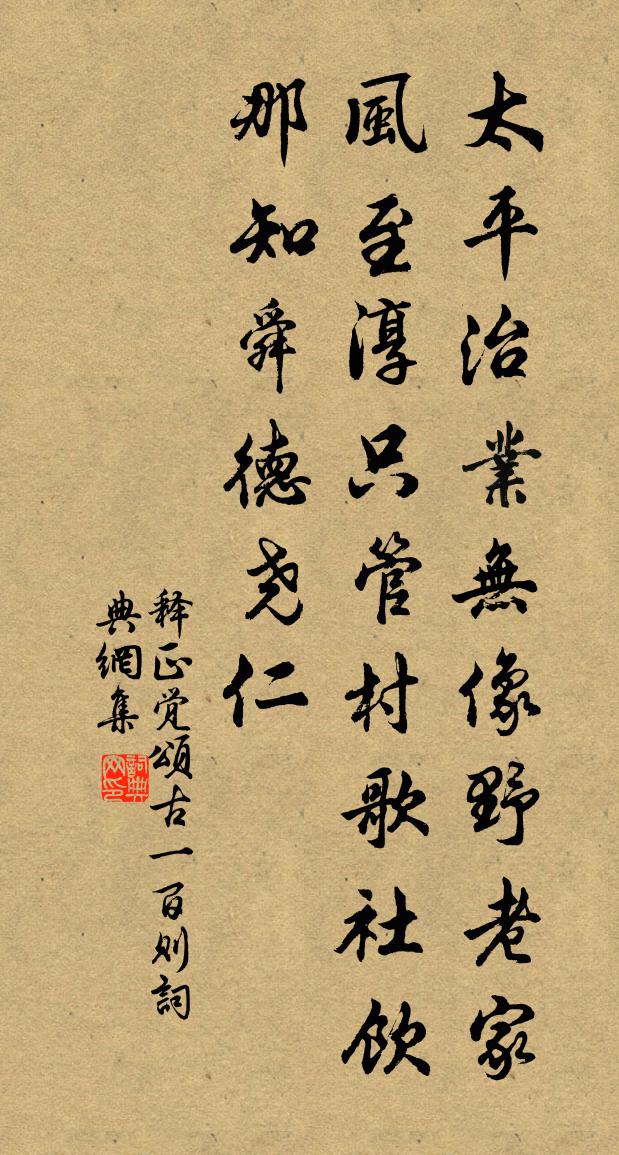 太平治業無像野老家
風至淳只管村歌社飲
那知舜德尧仁
释正觉頌古一百则詞
典網集
詞典网印